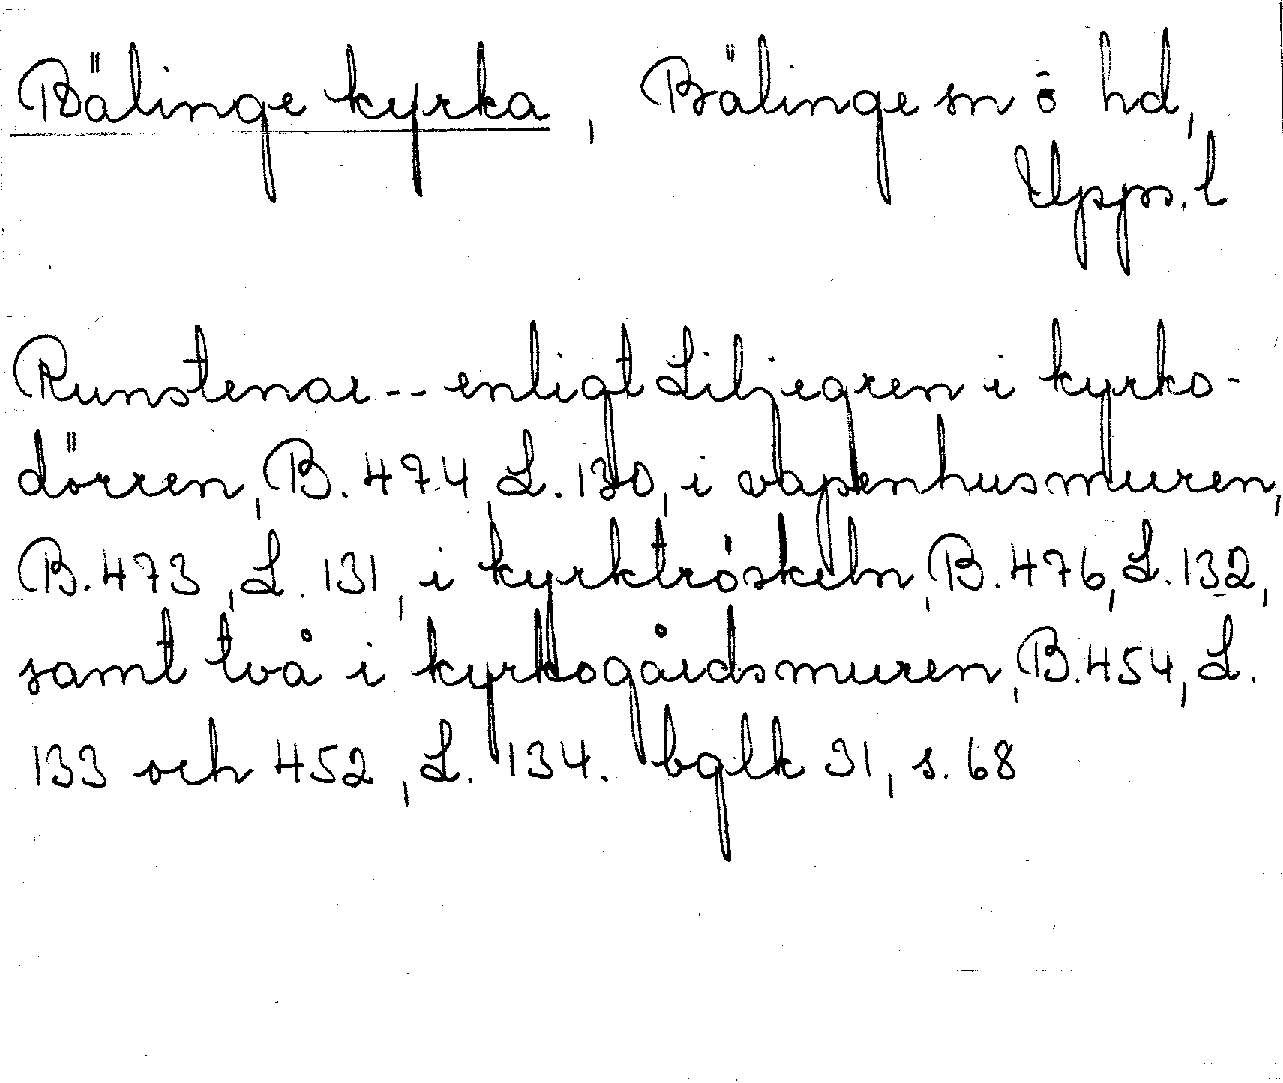 Bälinge kyrka, Bälinge sn ö hd,
Upps. l
Runstenar -- enligt Liljegren i kyrko-
dörren, B. 474, L. 130, i vapenhusmuren,
B. 473, L. 131, i kyrktröskeln, B. 476, L. 132,
samt två i kyrkogårdsmuren, B. 454, L.
133 och 452, L. 134. bglk 31, s. 68